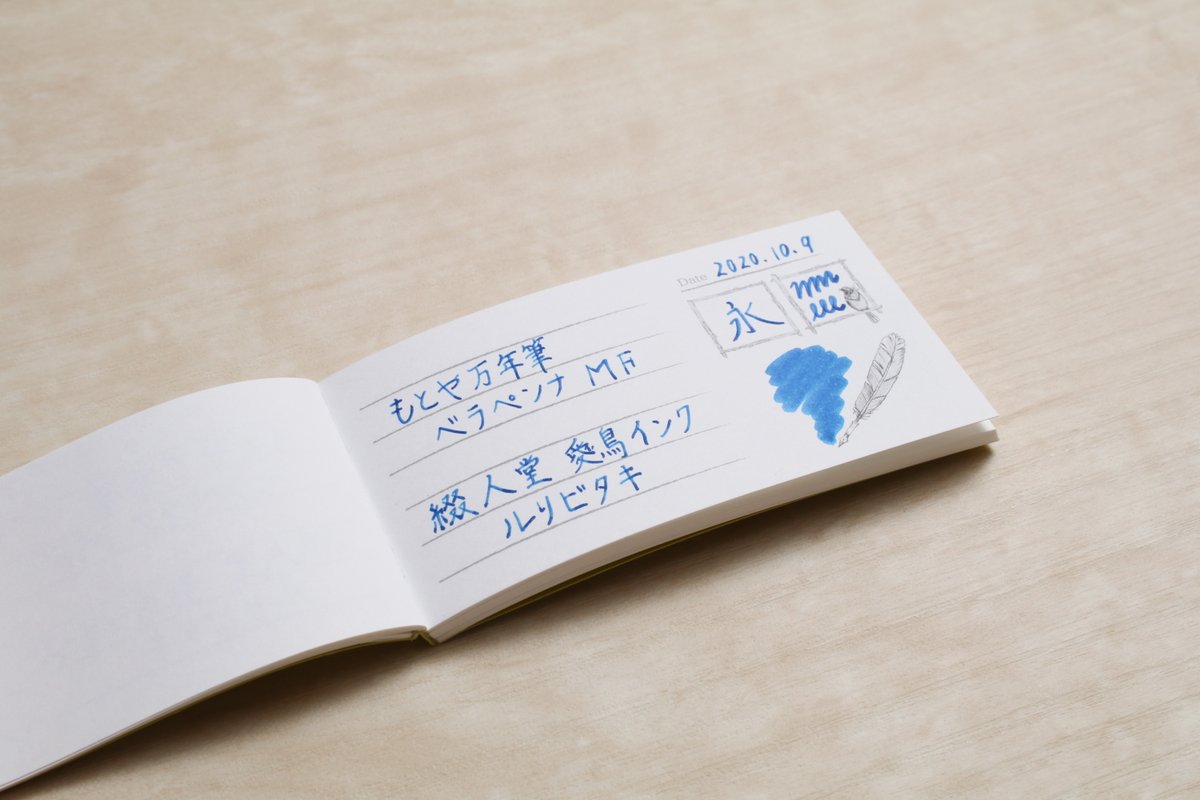 Date 2020.10.9
永
もとや万年筆
ベラペンナ MF
綴人堂 愛鳥インク
ルリビタキ